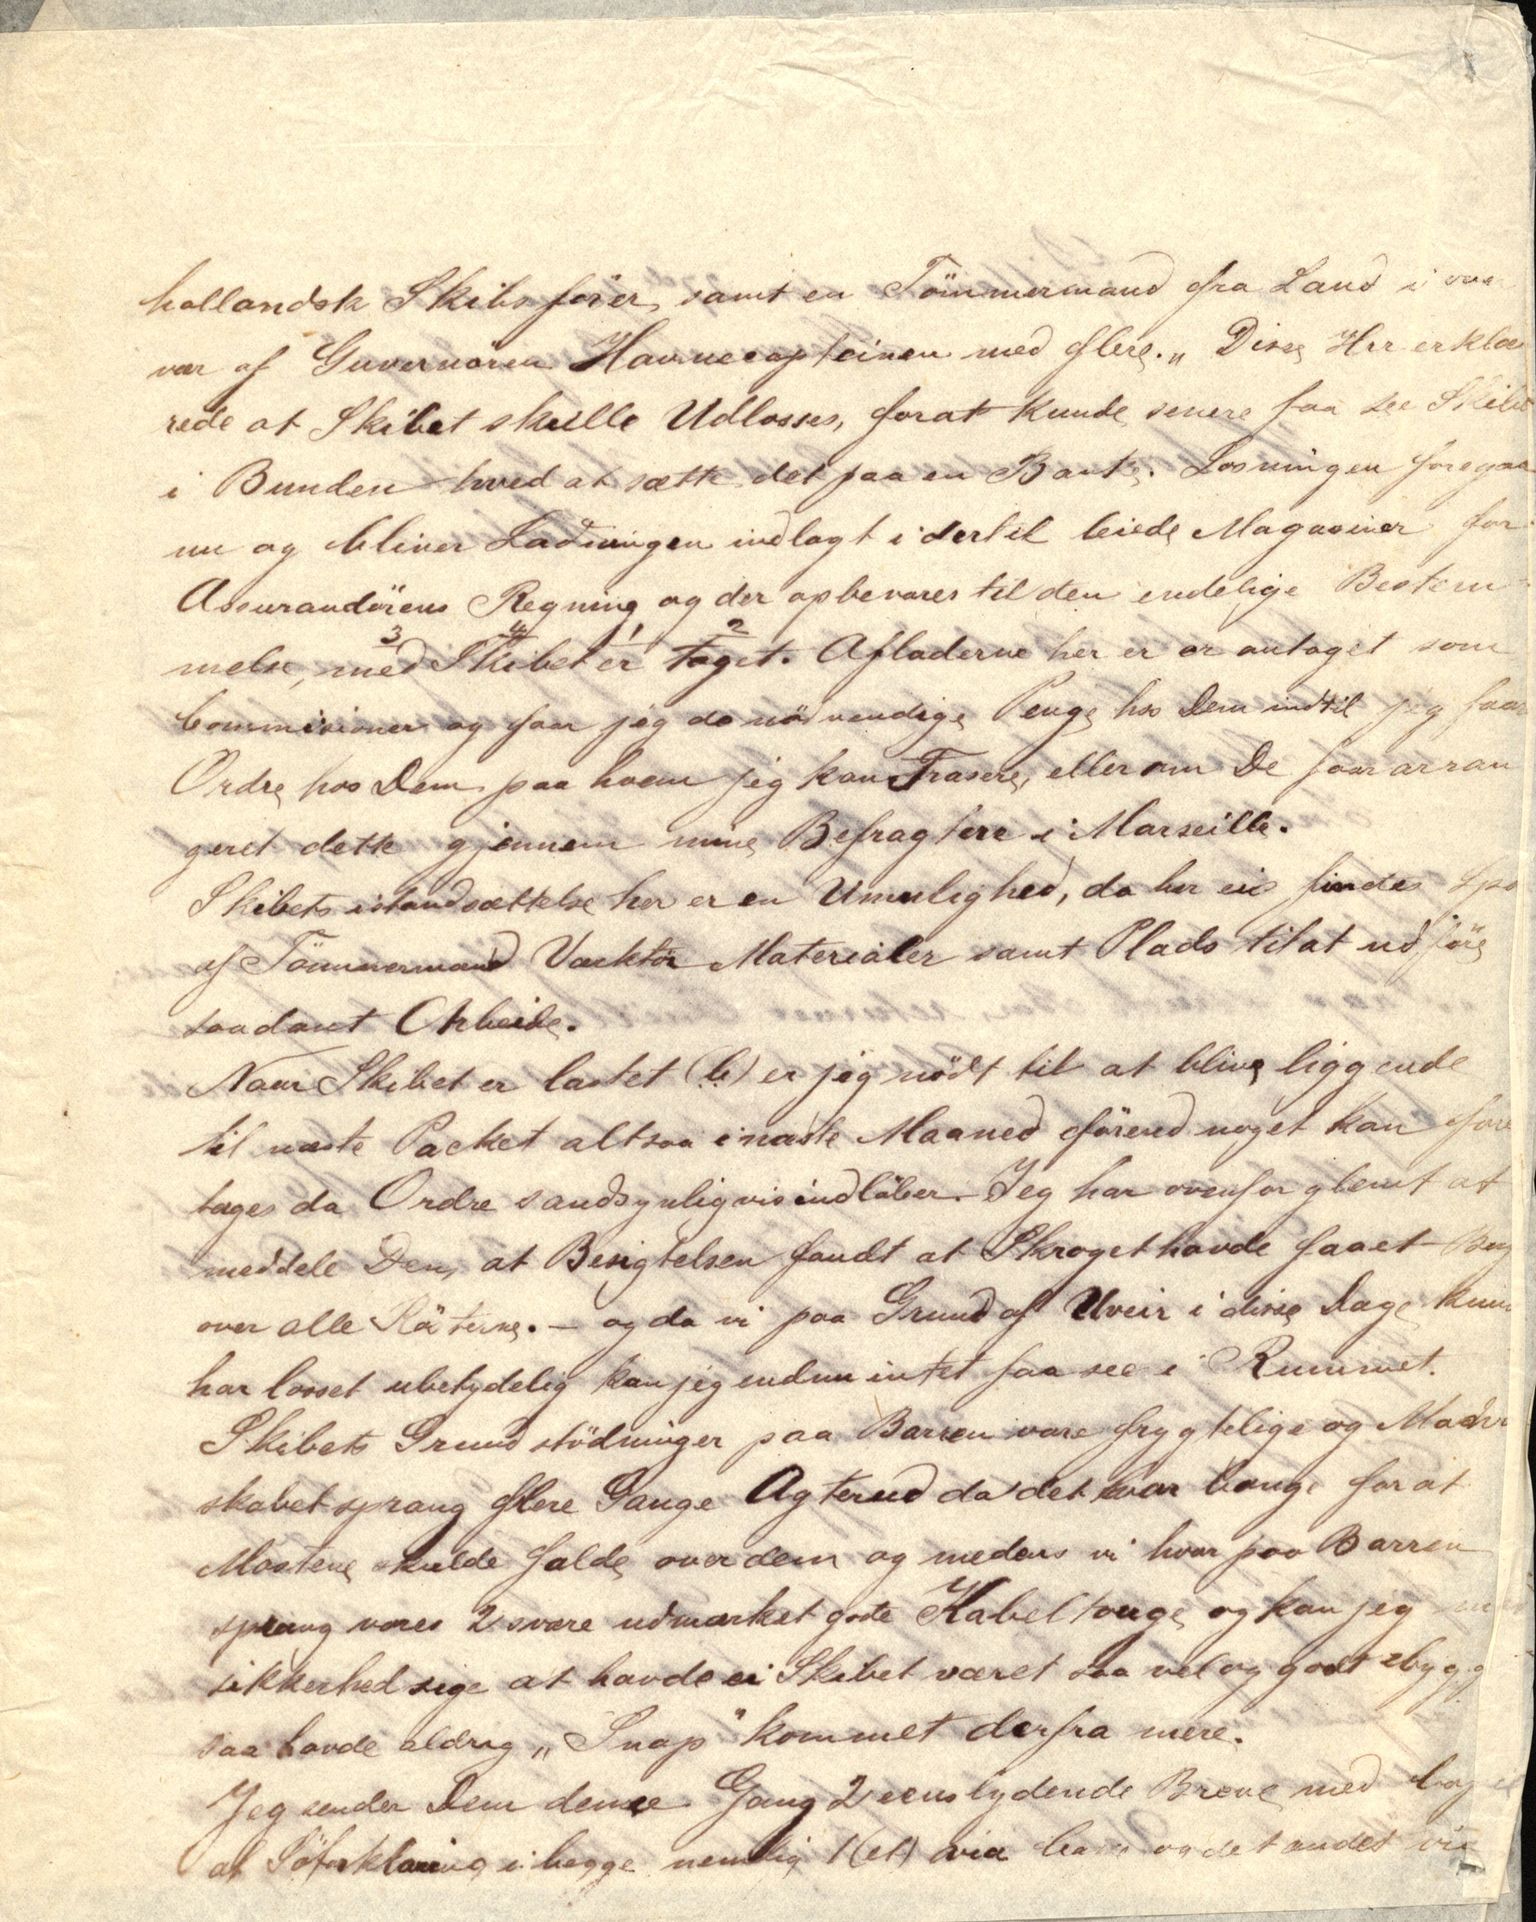 hollandsk Skibsfører, samt en Tömmermand fra Land i over
vær af Guvernøren Havnecapteinen med flere. „ Disse Hrr erklæ
rede at Skibet skulle Udlosses, forat kunde senere faa see Skibet
i Bunden hved at sætte det paa en Banke. Losningen foregaar
nu og bliver Ladningen indlagt i dertil leiede Magasiner for
Assurandörens Regning og der opbevares til den endelige Bestem
melse, 3 med 4 Skibet 1 er 2 taget. Afladerne her er er antaget som
Commisioner og faar jeg de nödvendige Penge hos Dem indtil jeg faar
Ordre hos Dem paa hvem jeg kan Trasere, eller om De faar arran
geret dette gjennem mine Befragtere i Marseille.
Skibets istandsættelse her er en Umulighed, da her ei findes Spo
af Tömmermand Værktöi Materialer samt Plads til at udföre
saadant Arbeide.
Naar Skibet er lastet (b) er jeg nödt til at blive liggende
til næste Packet altsaa i næste Maaned förend noget kan fore
tages da Ordre sandsynligvis indlöber. Jeg har ovenfor glemt at
meddele Dem, at Besigtelsen fandt at Skroget havde faaet
over alle Rösterne. — og da vi paa Grund af Uveir i disse Dage kun
har losset ubetydelig kan jeg endnu intet faa see i Rummet.
Skibets Grundstödninger paa Barren vare frygtelige og Mand
skabet sprang flere Gange Agterud da det var bange for at
Mastene skulde falde over dem og medens vi hvar paa Barren
sprang vores 2 svære udmærket gode Kabeltouge og kan jeg
sikkerhed sige at havde ei Skibet været saa vel og godt bygg
saa havde aldrig „Snap" kommet derfra mere.
Jeg sender Dem denne Gang 2 eenslydende Breve med
at Söforklaring i begge nemlig 1 (et) via og det andet via